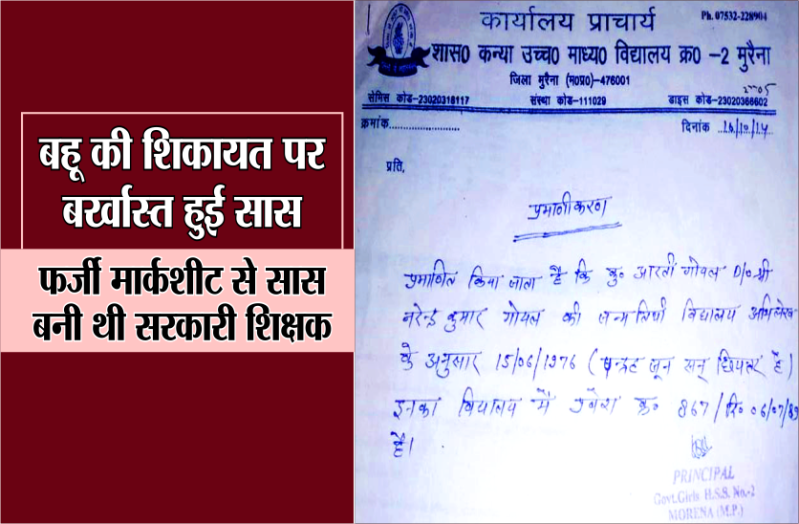 बहू की शिकायत पर
बर्खास्त हुई सास
फर्जी मार्कशीट से सास
बनी थी सरकारी शिक्षक
कार्यालय प्राचार्य
Ph. 07532-228904
शास0 कन्या उच्च0 माध्य0 विद्यालय क्र0 -2 मुरैना
जिला मुरैना (म0प्र0)-476001
सेमिस कोड-23020318117 संस्था कोड-111029 डाइस कोड-23020366602
क्रमांक.................... दिनांक 16/10/14
प्रति,
प्रमाणीकरण
प्रमाणित किया जाता है कि कु० आरती गोयल D/o श्री
नरेन्द्र कुमार गोयल की जन्मतिथी विद्यालय अभिलेख
के अनुसार 15/06/1976 (पन्द्रह जून सन् छियत्तर है)
इनका विद्यालय में प्रवेश क्र० 867/दि० 06/07/89
है।
PRINCIPAL
Govt.Girls H.S.S. No.-2
MORENA (M.P.)